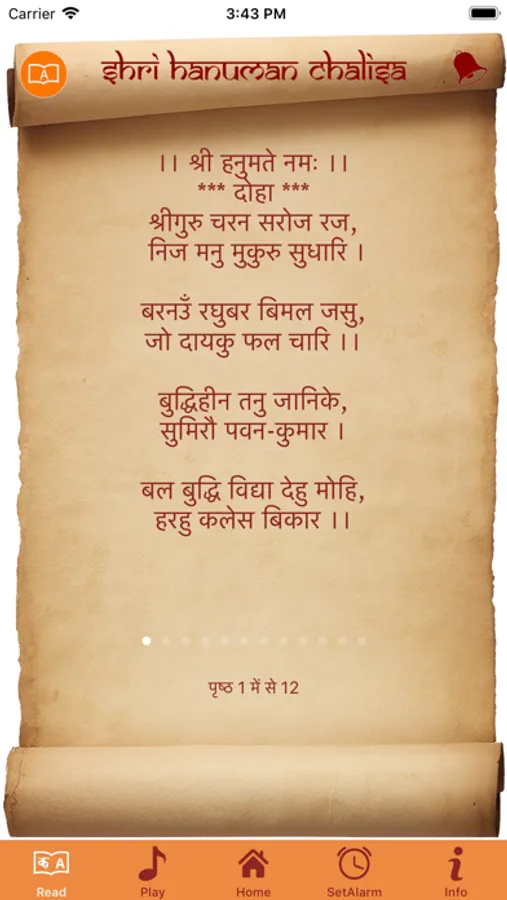 Carrier 3:43 PM
shri hanuman chalisa
।। श्री हनुमते नमः ।।
*** दोहा ***
श्रीगुरु चरन सरोज रज,
निज मनु मुकुरु सुधारि ।
बरनउँ रघुबर बिमल जसु,
जो दायकु फल चारि ।।
बुद्धिहीन तनु जानिके,
सुमिरौ पवन-कुमार ।
बल बुद्धि विद्या देहु मोहि,
हरहु कलेस बिकार ।।
पृष्ठ 1 में से 12
क A
Read Play Home SetAlarm Info